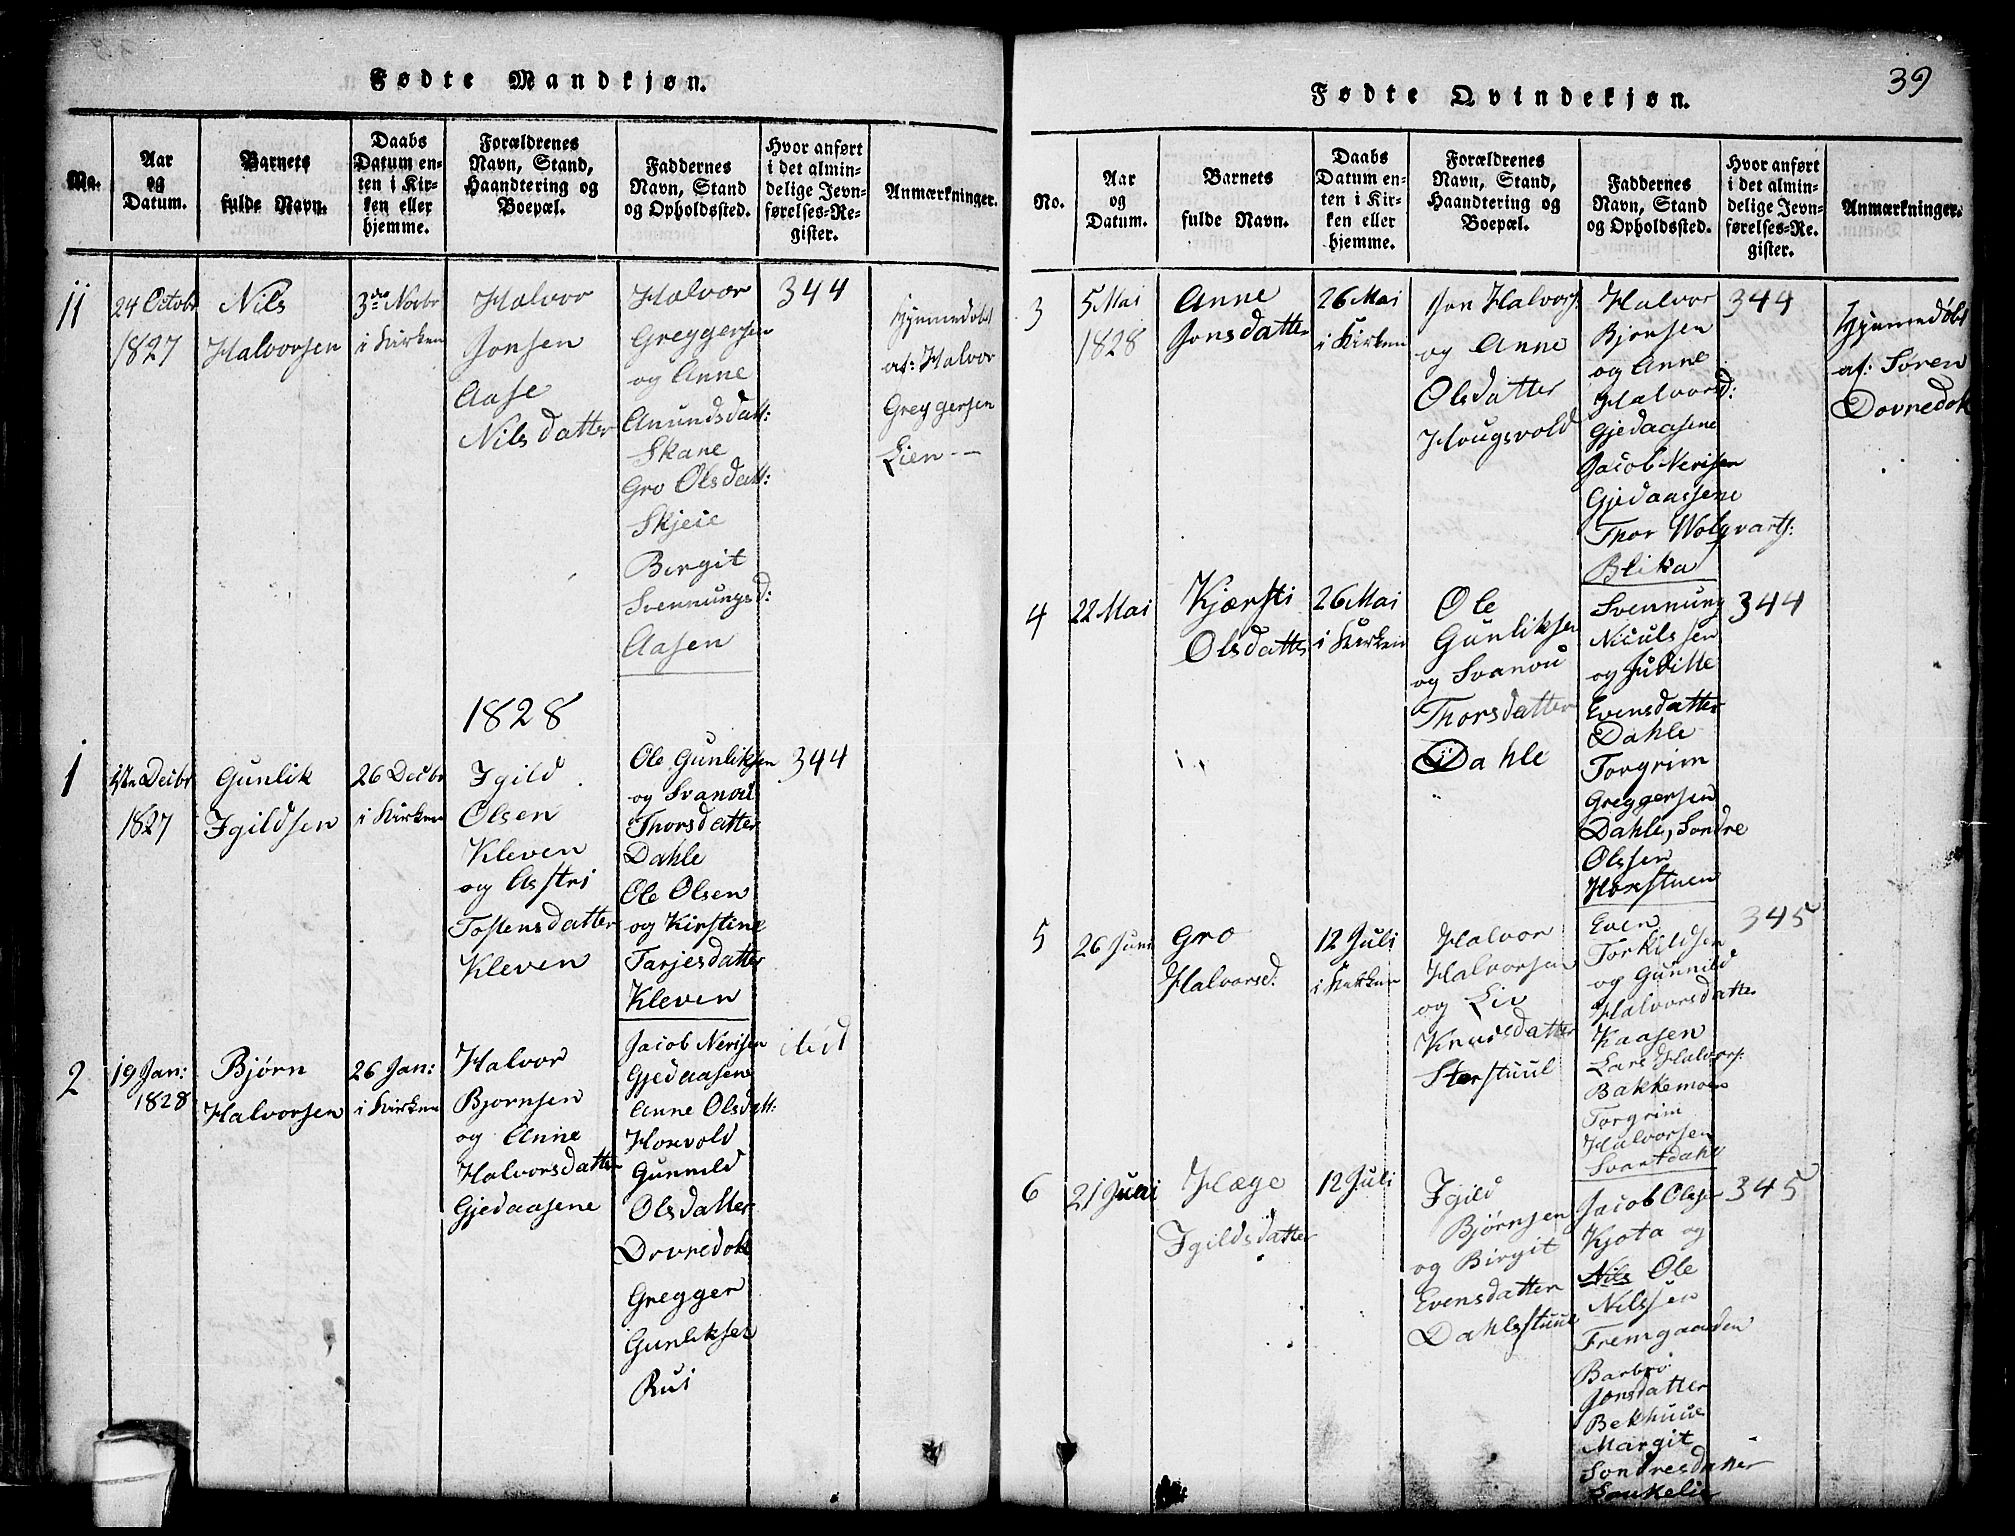 39
Fødte Mandkjøn.
No.
Aar
og
Datum.
Barnets
fulde Navn.
Daabs
Datum en-
ten i Kir-
ken eller
hjemme.
Forældrenes
Navn, Stand,
Haandtering og
Boepæl.
Faddernes
Navn, Stand
og Opholdssted.
Hvor anført
i det almin-
delige Jevn-
førelses-Re-
gister.
Anmærkninger.
11
24 Octobr
1827
Nils
Halvorsen
3de Novbr
i Kirken
Halvor
Jonsen
Aase
Nilsdatter
Halvor
Greggersen
og Anne
Anundsdatt:
Skane
Gro Olsdatt:
Skjeie
Birgit
Svennungsd:
Aasen
344
Hjemmedøbt
af: Halvor
Greggersen
Lien --
1828
1
Decbr
1827
Gunlik
Igildsen
26 Decbr
i Kirken
Igild
Olsen
Kleven
og Astri
Tostensdatter
Kleven
Ole Gunliksen
og Svanou
Thorsdatter
Dahle
Ole Olsen
og Kirstine
Tarjesdatter
Kleven
344
2
19 Jan:
1828
Bjørn
Halvorsen
26 Jan:
i Kirken
Halvor
Bjornsen
og Anne
Halvorsdatter
Gjedaasene
Jacob Nerisen
Gjedaasene
Anne Olsdatt:
Hoxvold
Gunnild
Olsdatter
Dovnedok
Gregger
Gunliksen
Rui
Fødte Qvindekjøn.
No.
Aar
og
Datum.
Barnets
fulde Navn.
Daabs
Datum en-
ten i Kir-
ken eller
hjemme.
Forældrenes
Navn, Stand,
Haandtering og
Boepæl.
Faddernes
Navn, Stand
og Opholdssted.
Hvor anført
i det almin-
delige Jevn-
førelses-Re-
gister.
Anmærkninger.
3
5 Mai
1828
Anne
Jonsdatter
26 Mai
i Kirken
Jon Halvors:
og Anne
Olsdatter
Hougsvold
Halvor
Bjørnsen
og Anne
Halvorsd:
Gjedaasene
Jacob Nerisen
Gjedaassene
Thor Wolqvarts:
Blika
344
Hjemmedøbt
af: Søren
Dovnedok
4
22 Mai
Kjærsti
Olsdatter
26 Mai
i Kirken
Ole
Gunliksen
og Svanou
Thorsdatter
Dahle
Svennung
Niculssen
og Juditte
Evensdatter
Dahle
Torgrim
Greggersen
Dahle, Sondre
Olssen
Hoxstuen
344
5
26 Juni
Gro
Halvorsd:
12 Juli
i Kirken
Halvor
Halvorsen
og Liv
Knudsdatter
Storstuul
Even
Torkildsen
og Gunnild
Halvorsdatter
Kaasen
Lars Halvors:
Bakkemoen
Torgrim
Halvorsen
Svartdahl
345
6
21 Juni
Hæge
Igildsdatter
12 Juli
Igild
Bjørnsen
og Birgit
Evensdatter
Dahlsstuue
Jacob Olsen
Kjota og
Nils Ole
Nilssen
Fremgaarden
Barbro
Jonsdatter
Bekhuue
Margit
Sondresdatter
345